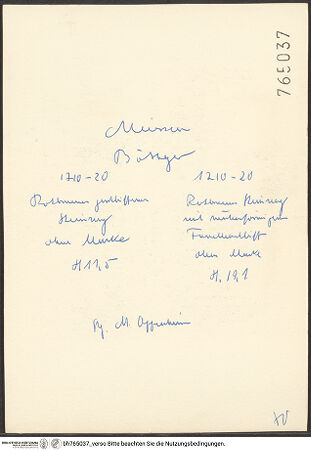 765037
Meissen
Böttger
1710-20
Rotbraunes geschliffenes
Steinzeug
ohne Marke
H 11,5
1710-20
Rotbraunes Steinzeug
mit
ohne Marke
H. 19,1
Slg. M. Oppenheim
bh765037_verso Bitte beachten Sie die Nutzungsbedingungen.